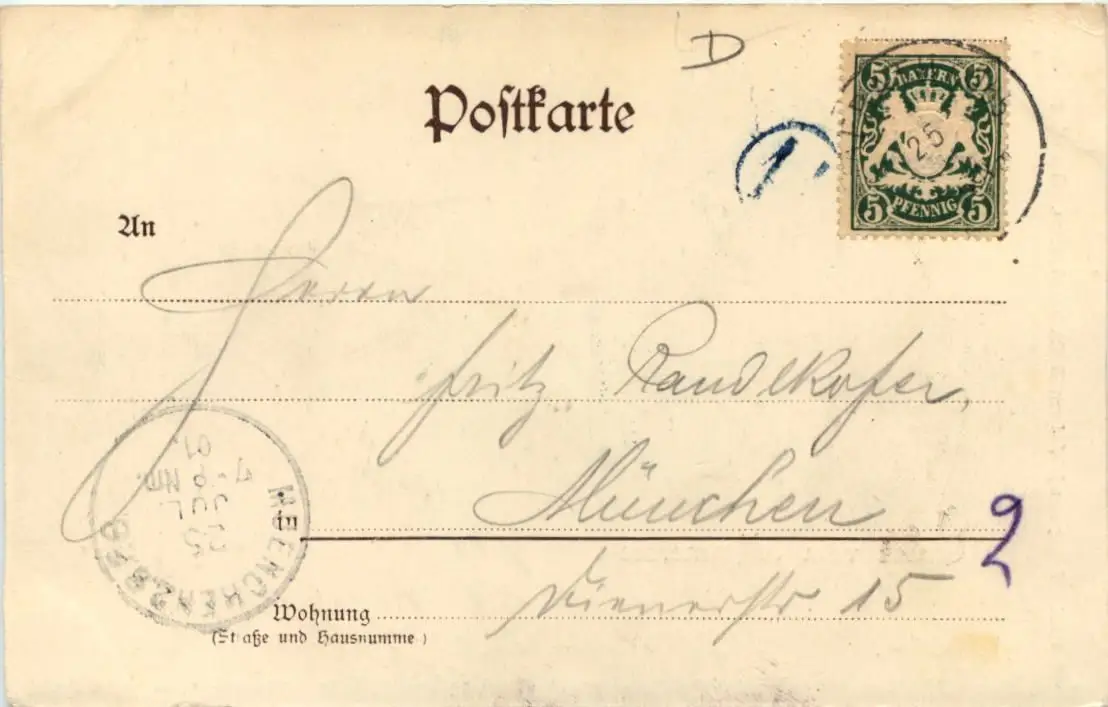 D
Poſtkarte
5 BAYERN 5
25
5 PFENNIG 5
An
Herrn
Fritz Randlkofer,
in München
2
Wohnung Dienerstr. 15
(Straße und Hausnumme)
MUENCHEN 2 B.Z.6
25
JUL
7-8 NM.
01.